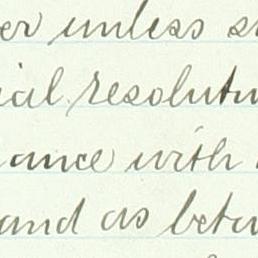 er unless su
ial resolutu
ance with
and as betw